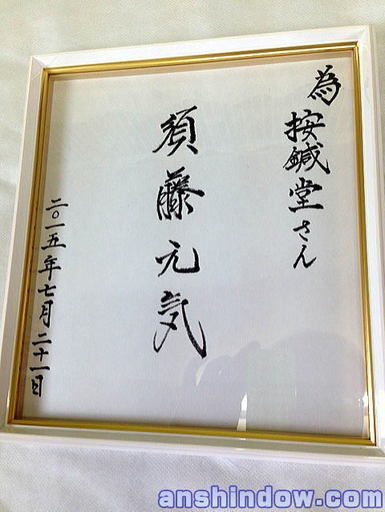 為 按鍼堂さん
須藤元気
二〇一五年七月二十一日
anshindow.com